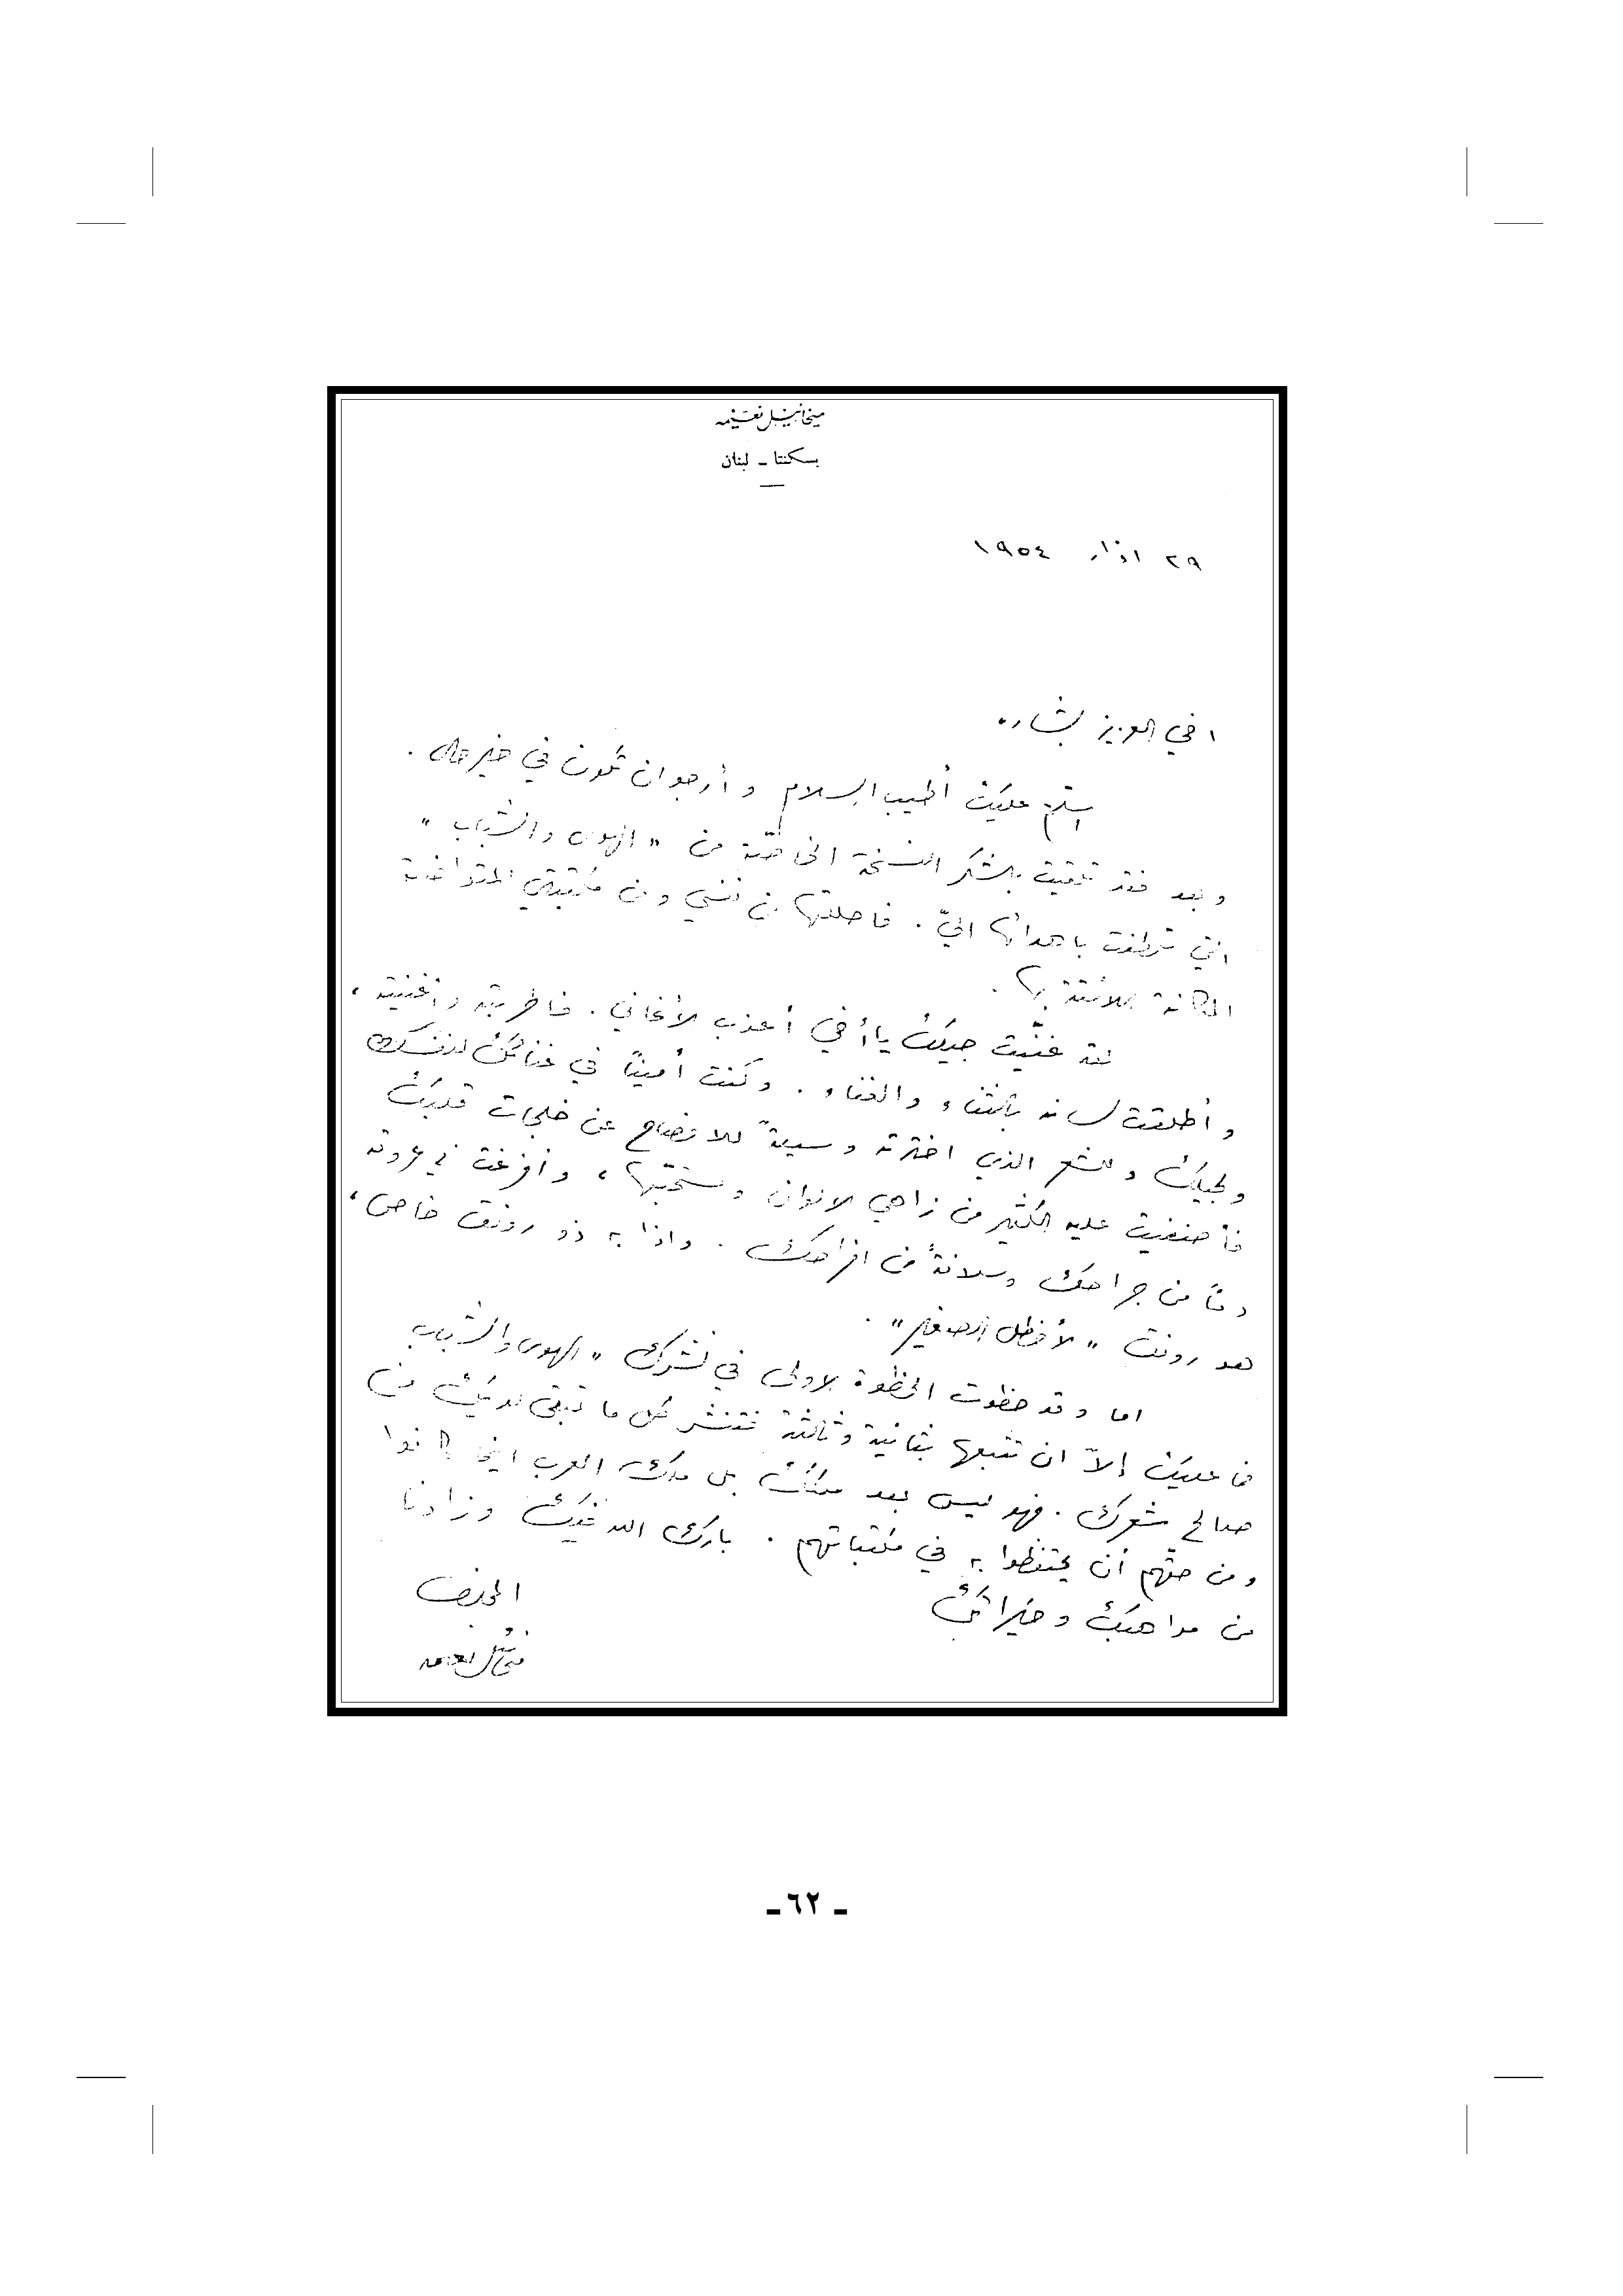 ميخائيل نعيمه
بسكنتا - لبنان
٢٩ اذار ١٩٥٤
اخي العزيز بشاره
اسلّم عليك أطيب السلام وأرجو ان تكون في خير حال.
وبعد فقد تلقيت بالشكر النسخة الخاصّة من "الهوى والشباب"
التي تلطفت باهدائها اليّ. فاحللتها من نفسي ومن مكتبتي المتواضعة
المكانة اللائقة بها.
لقد غنّيت جيلك يا أخي أعذب الأغاني. فاطربته وأغنيته،
وأطلقت لسانه بالثناء والغناء. وكنت أمينًا في غنائك لنفسك
ولجيلك وللشعر الذي اخترته وسيلةً للافصاح عن خلجات قلبك
فأضفيت عليه الكثير من زاهي الالوان ومستحبّها، وأفرغت في عروقه
دمًا من جراحك وسلافةً من افراحك. واذا به ذو رونق خاص،
هو رونق "الأخطل الصغير".
اما وقد خطوت الخطوة الاولى في نشرك "الهوى والشباب
فما عليك إلاّ ان تتبعها بثانية وثالثة فتنشر كل ما تبقى لديك من
صالح شعرك. فهو ليس بعد ملكك بل ملك العرب اينما كانوا
ومن حقّهم أن يحتفظوا به في مكتباتهم. بارك الله فيك وزادنا
من مواهبك وخيراتك
المخلص
ميخائيل نعيمه
- ٦٢ -